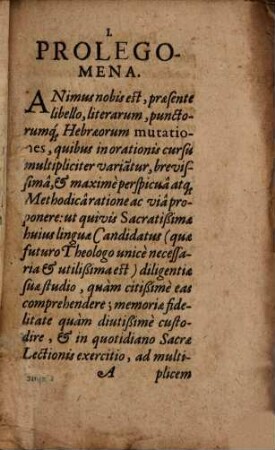 I.
PROLEGO-
MENA.
ANimus nobis est, præsente
libello, literarum, puncto-
rumq́; Hebræorum mutatio-
nes, quibus in orationis cursu
multipliciter variātur, brevis-
simâ, & maximè perspicuâ atq́;
Methodicâ ratione ac viâ pro-
ponere: ut quivis Sacratissimæ
huius linguæ Candidatus (quæ
futuro Theologo unicè necessa-
ria & utilissima est) diligentiæ
suæ studio, quàm citissimè eas
comprehendere; memoriæ fide-
litate quàm diutissimè custo-
dire, & in quotidiano Sacræ
Lectionis exercitio, ad multi-
A plicem